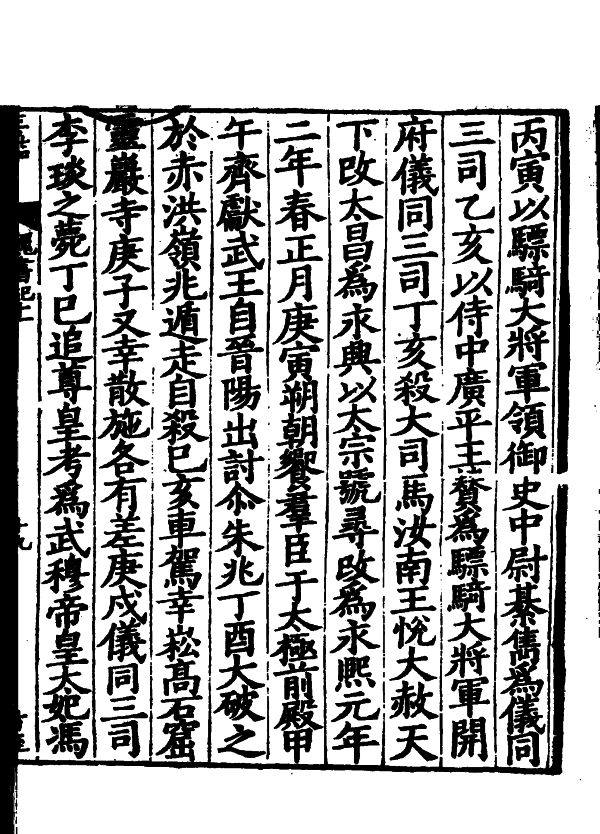 丙寅以驃騎大將軍領御史中尉綦儁爲儀同
三司乙亥以侍中廣平王贊爲驃騎大將軍開
府儀同三司丁亥殺大司馬汝南王悅大赦天
下改太昌爲永興以太宗號尋改爲永熙元年
二年春正月庚寅朔朝饗羣臣于太極前殿甲
午齊獻武王自晉陽出討尒朱兆丁酉大破之
於赤洪嶺兆遁走自殺己亥車駕幸崧高石窟
靈巖寺庚子又幸散施各有差庚戍儀同三司
李琰之薨丁巳追尊皇考爲武穆帝皇太妃馮
十九